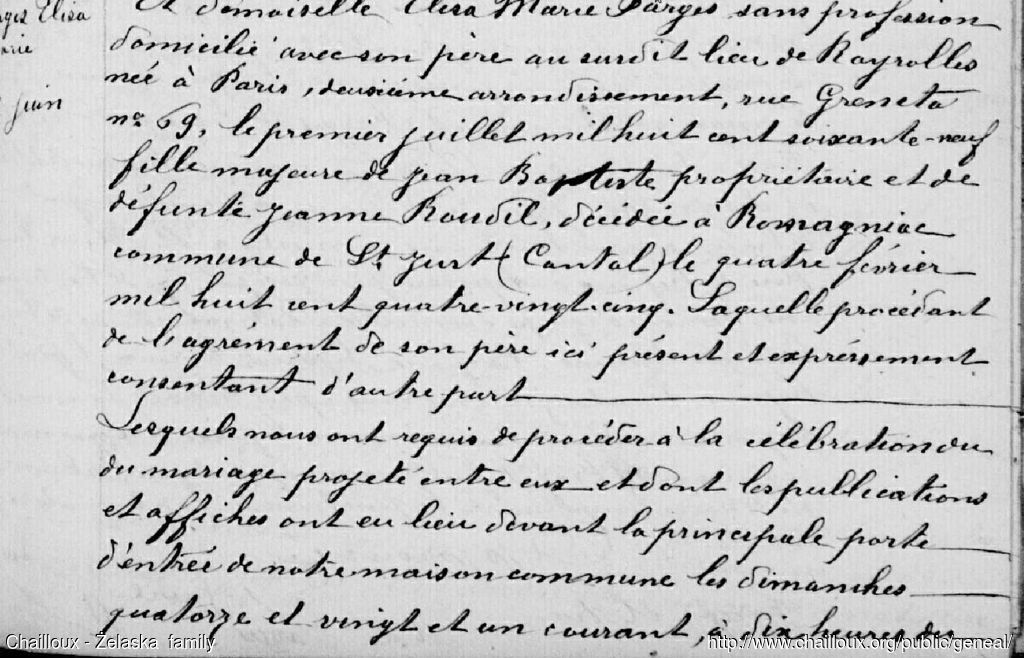 Et demoiselle Elisa Marie Farges sans profession
domicilié avec son père au susdit lieu de Rayrolles
née à Paris, deuxième arrondissement, rue Greneta
n° 69, le premier juillet mil huit cent soixante-neuf
fille majeure de Jean Baptiste propriétaire et de
défunte Jeanne Roudil, décédée à Romagniac
commune de St Just (Cantal) le quatre février
mil huit cent quatre-vingt-cinq. Laquelle procédant
de l'agrément de son père ici présent et expréssement
consentant d'autre part
Lesquels nous ont requis de procéder à la célébration du
du mariage projeté entre eux et dont les publications
et affiches ont eu lieu devant la principale porte
d'entrée de notre maison commune les dimanches
quatorze et vingt et un courant, à dix heures du
Elisa
juin
Chailloux - Zelaska family
http://www.chailloux.org/public/geneal/